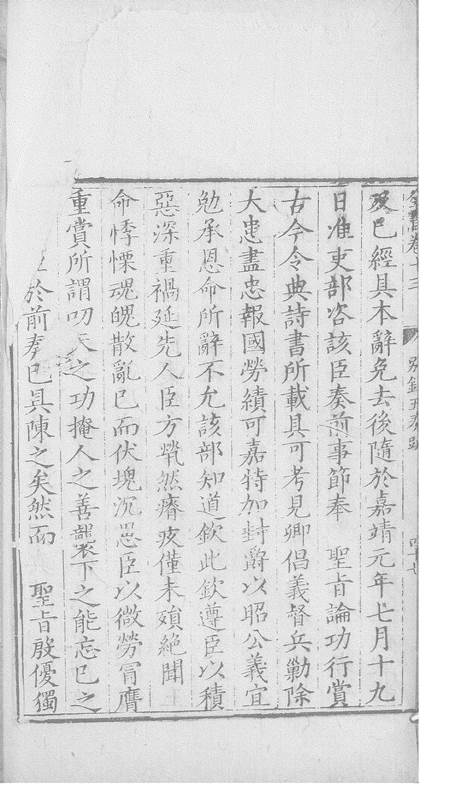 全書卷十三 別錄五奏疏
及已經具本辭免去後隨於嘉靖元年七月十九
日准吏部咨該臣奏前事節奉 聖旨論功行賞
古今令典詩書所載具可考見卿倡義督兵勦除
大患盡忠報國勞績可嘉特加封爵以昭公義宜
勉承恩命所辭不允該部知道欽此欽遵臣以積
惡深重禍延先人臣方煢然瘠疚僅未殞絕聞
命悸慄魂魄散亂已而伏塊沉思臣以微勞冒膺
重賞所謂叨天之功掩人之善襲下之能忘己之
於前奏已具陳之矣然而 聖旨殷優獨